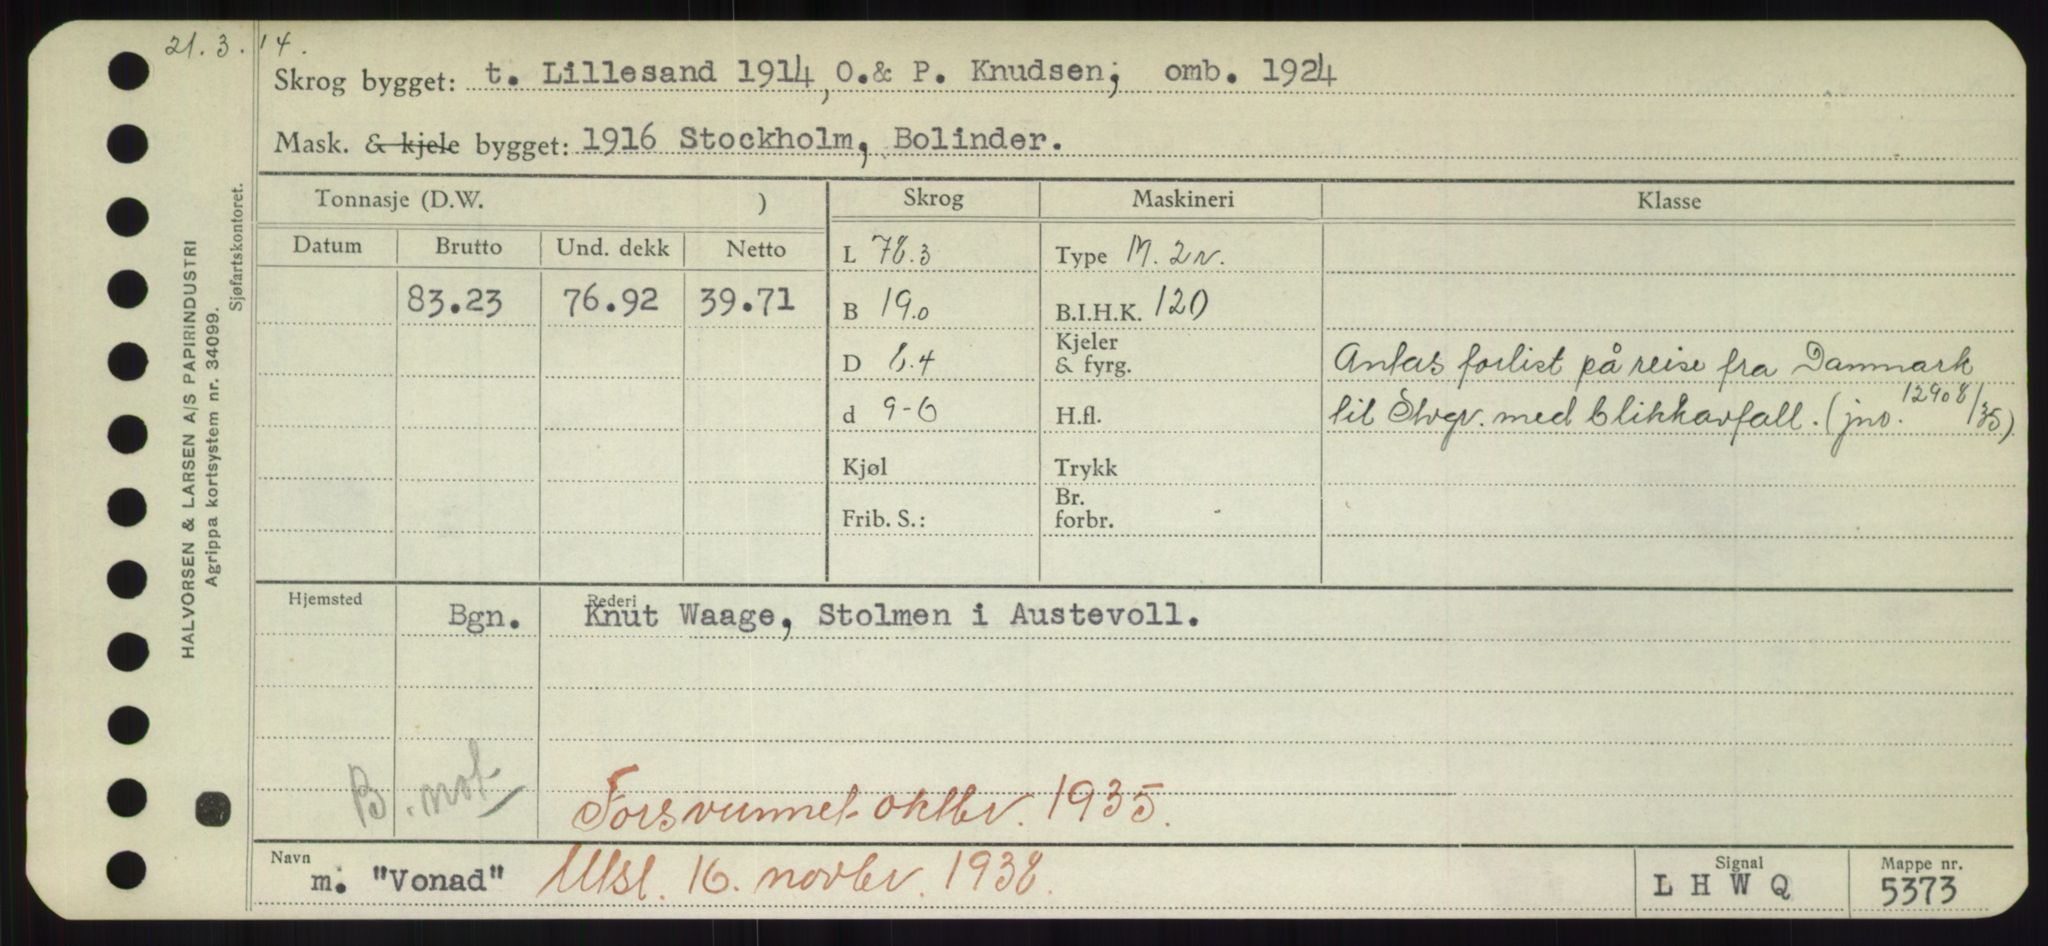 21.3.14.
Skrog bygget: t. Lillesand 1914, O.& P. Knudsen; omb. 1924
Mask. & kjele bygget: 1916 Stockholm, Bolinder.
HALVORSEN & LARSEN A/S PAPIRINDUSTRI
Agrippa kortsystem nr. 34099.
Sjøfartskontoret.
Tonnasje (D.W. ) Skrog Maskineri Klasse
Datum Brutto Und. dekk Netto
L 78.3 Type M. 2 v.
83.23 76.92 39.71 B 19.0 B.I.H.K. 120
D 8.4 Kjeler & fyrg. Antas forlist på reise fra Danmark
d 9-6 H.fl. til Stvgr. med blikkavfall. (jno. 12908/35)
Kjøl Trykk
Frib. S.: Br. forbr.
Hjemsted Bgn. Rederi Knut Waage, Stolmen i Austevoll.
B. not
Forsvunnet oktbr. 1935.
Navn m. "Vonad" Utsl. 16. novbr. 1938. Signal L H W Q Mappe nr. 5373